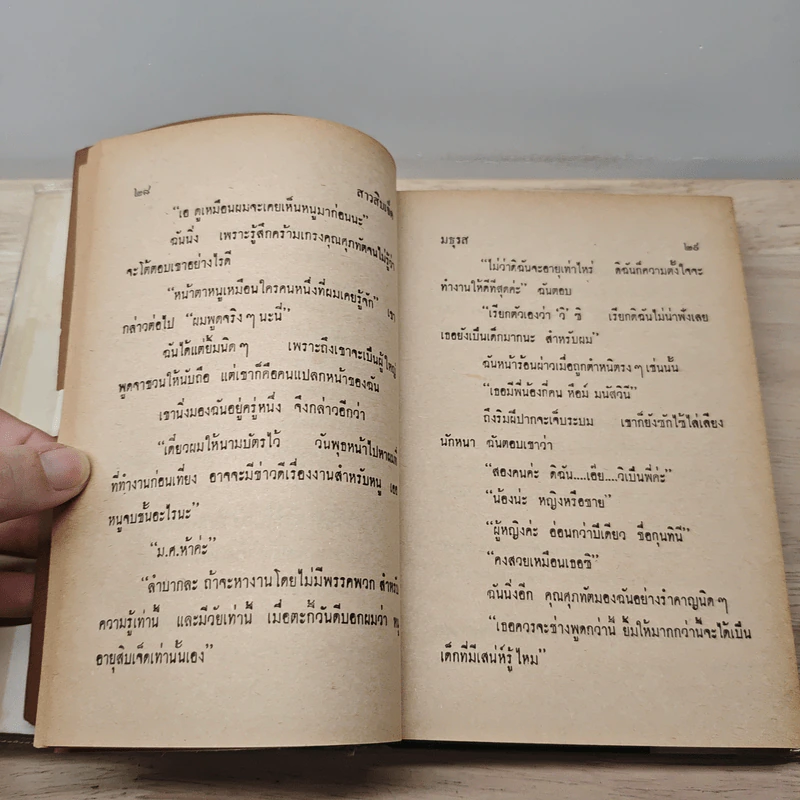 ๒๘
สาวสิบเจ็ด
“เอ ดูเหมือนผมจะเคยเห็นหนูมาก่อนนะ”
ฉันนิ่ง เพราะรู้สึกคร้ามเกรงคุณศุภทัตจนไม่รู้ว่า
จะโต้ตอบเขาอย่างไรดี
“หน้าตาหนูเหมือนใครคนหนึ่งที่ผมเคยรู้จัก” เขา
กล่าวต่อไป “ผมพูดจริง ๆ นะนี่”
ฉันได้แต่ยิ้มนิด ๆ เพราะถึงเขาจะเป็นผู้ใหญ่
พูดจาชวนให้นับถือ แต่เขาก็คือคนแปลกหน้าของฉัน
เขานิ่งมองฉันอยู่ครู่หนึ่ง จึงกล่าวอีกว่า
“เดี๋ยวผมให้นามบัตรไว้ วันพุธหน้าไปหาผมที่
ที่ทำงานก่อนเที่ยง อาจจะมีข่าวดีเรื่องงานสำหรับหนู เออ
หนูจบชั้นอะไรนะ”
“ม.ศ.ห้าค่ะ”
“ลำบากละ ถ้าจะหางานโดยไม่มีพรรคพวก สำหรับ
ความรู้เท่านี้ และมีวัยเท่านี้ เมื่อตะกี้วันดีบอกผมว่า หนู
อายุสิบเจ็ดเท่านั้นเอง”
มธุรส
๒๙
“ไม่ว่าดิฉันจะอายุเท่าไหร่ ดิฉันก็ความตั้งใจจะ
ทำงานให้ดีที่สุดค่ะ” ฉันตอบ
“เรียกตัวเองว่า ‘วิ’ ซิ เรียกดิฉันไม่น่าฟังเลย
เธอยังเป็นเด็กมากนะ สำหรับผม”
ฉันหน้าร้อนผ่าวเมื่อถูกตำหนิตรง ๆ เช่นนั้น
“เธอมีพี่น้องกี่คน หือม์ มนัสวินี”
ถึงริมฝีปากจะเจ็บระบม เขาก็ยังซักไซ้ไล่เลียง
นักหนา ฉันตอบเขาว่า
“สองคนค่ะ ดิฉัน....เอ๊ย....วิเป็นพี่ค่ะ”
“น้องน่ะ หญิงหรือชาย”
“ผู้หญิงค่ะ อ่อนกว่าปีเดียว ชื่อกุนทินี”
“คงสวยเหมือนเธอซิ”
ฉันนิ่งอีก คุณศุภทัตมองฉันอย่างรำคาญนิด ๆ
“เธอควรจะช่างพูดกว่านี้ ยิ้มให้มากกว่านี้จะได้เป็น
เด็กที่มีเสน่ห์รู้ไหม”